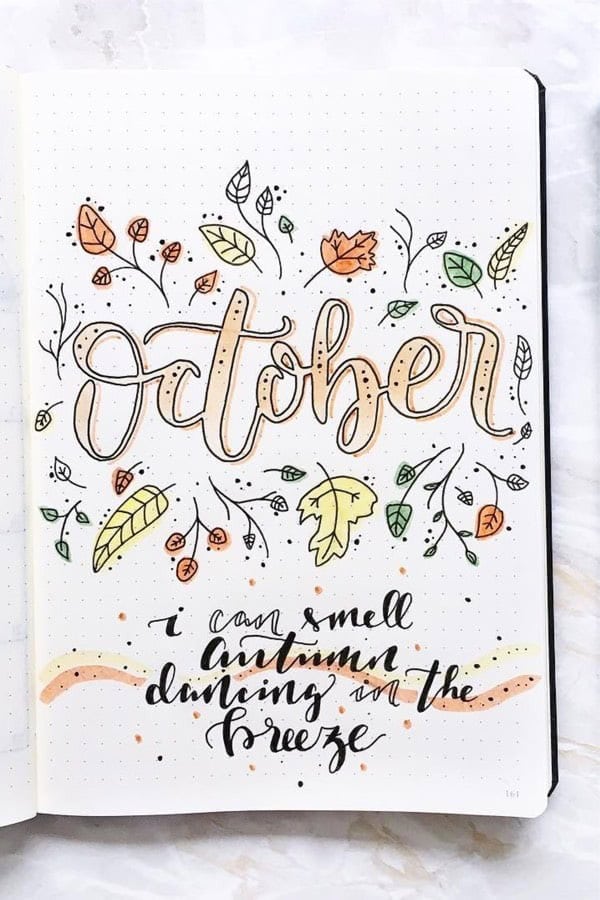 October
i can smell
autumn
dancing in the
breeze
161